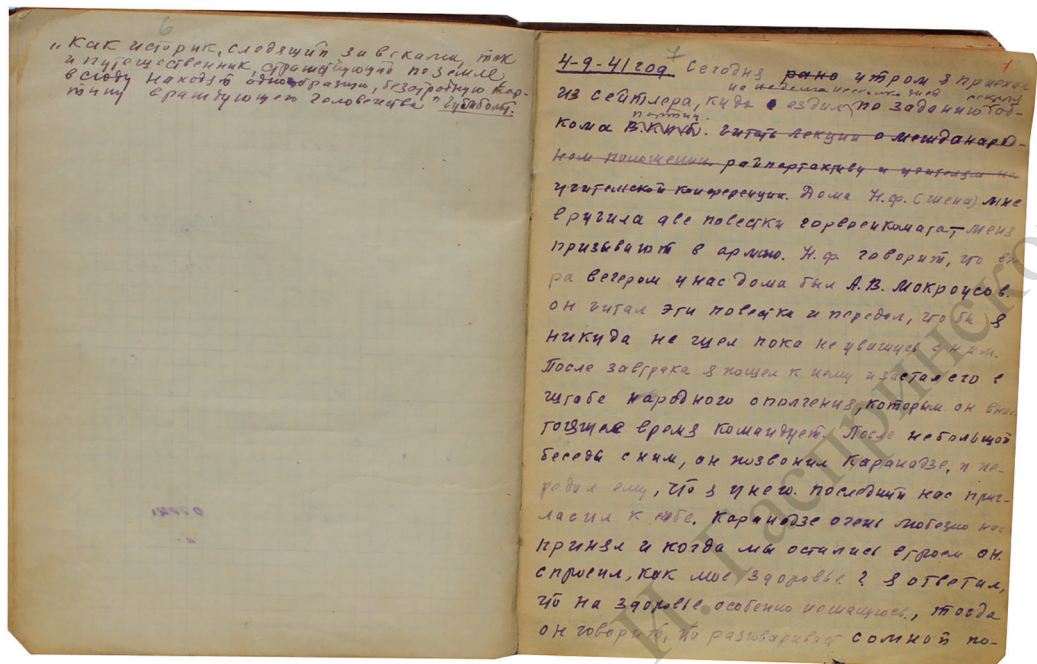 6
"Как историк, следящий за веками, так
и путешественник, странствующий по земле,
всюду находят однообразную, безотрадную кар-
тину враждующего человечества" Гумбольт.
7
1
4-9-41 год Сегодня рано утром я приехал
на несколько дней
из Сейтлера, куда ездил по заданию Об-
партии
кома В.К.П.б. читать лекции о междунаро-
ном положении райпартактиву и учителям на
учительской конференции. Дома Н.Ф. (жена) мне
вручила две повестки горвоенкомата - меня
призывают в армию. Н.Ф. говорит, что вче-
ра вечером у нас дома был А.В. Мокроусов.
он читал эти повестки и передал, что бы я
никуда не шел пока не увижусь с ним.
После завтрака я пошел к нему и застал его в
штабе народного ополчения, которым он внас-
тоящее время командует. После небольшой
беседы с ним, он позвонил Каранадзе, и пе-
редал ему, что я у него. Последний нас приг-
ласил к себе. Каранадзе очень любезно нас
принял и когда мы остались втроем он
спросил, как мое здоровье? Я ответил,
что на здоровье особенно не жалуюсь, тогда
он говорит, со мной по-
И. Гаспринско